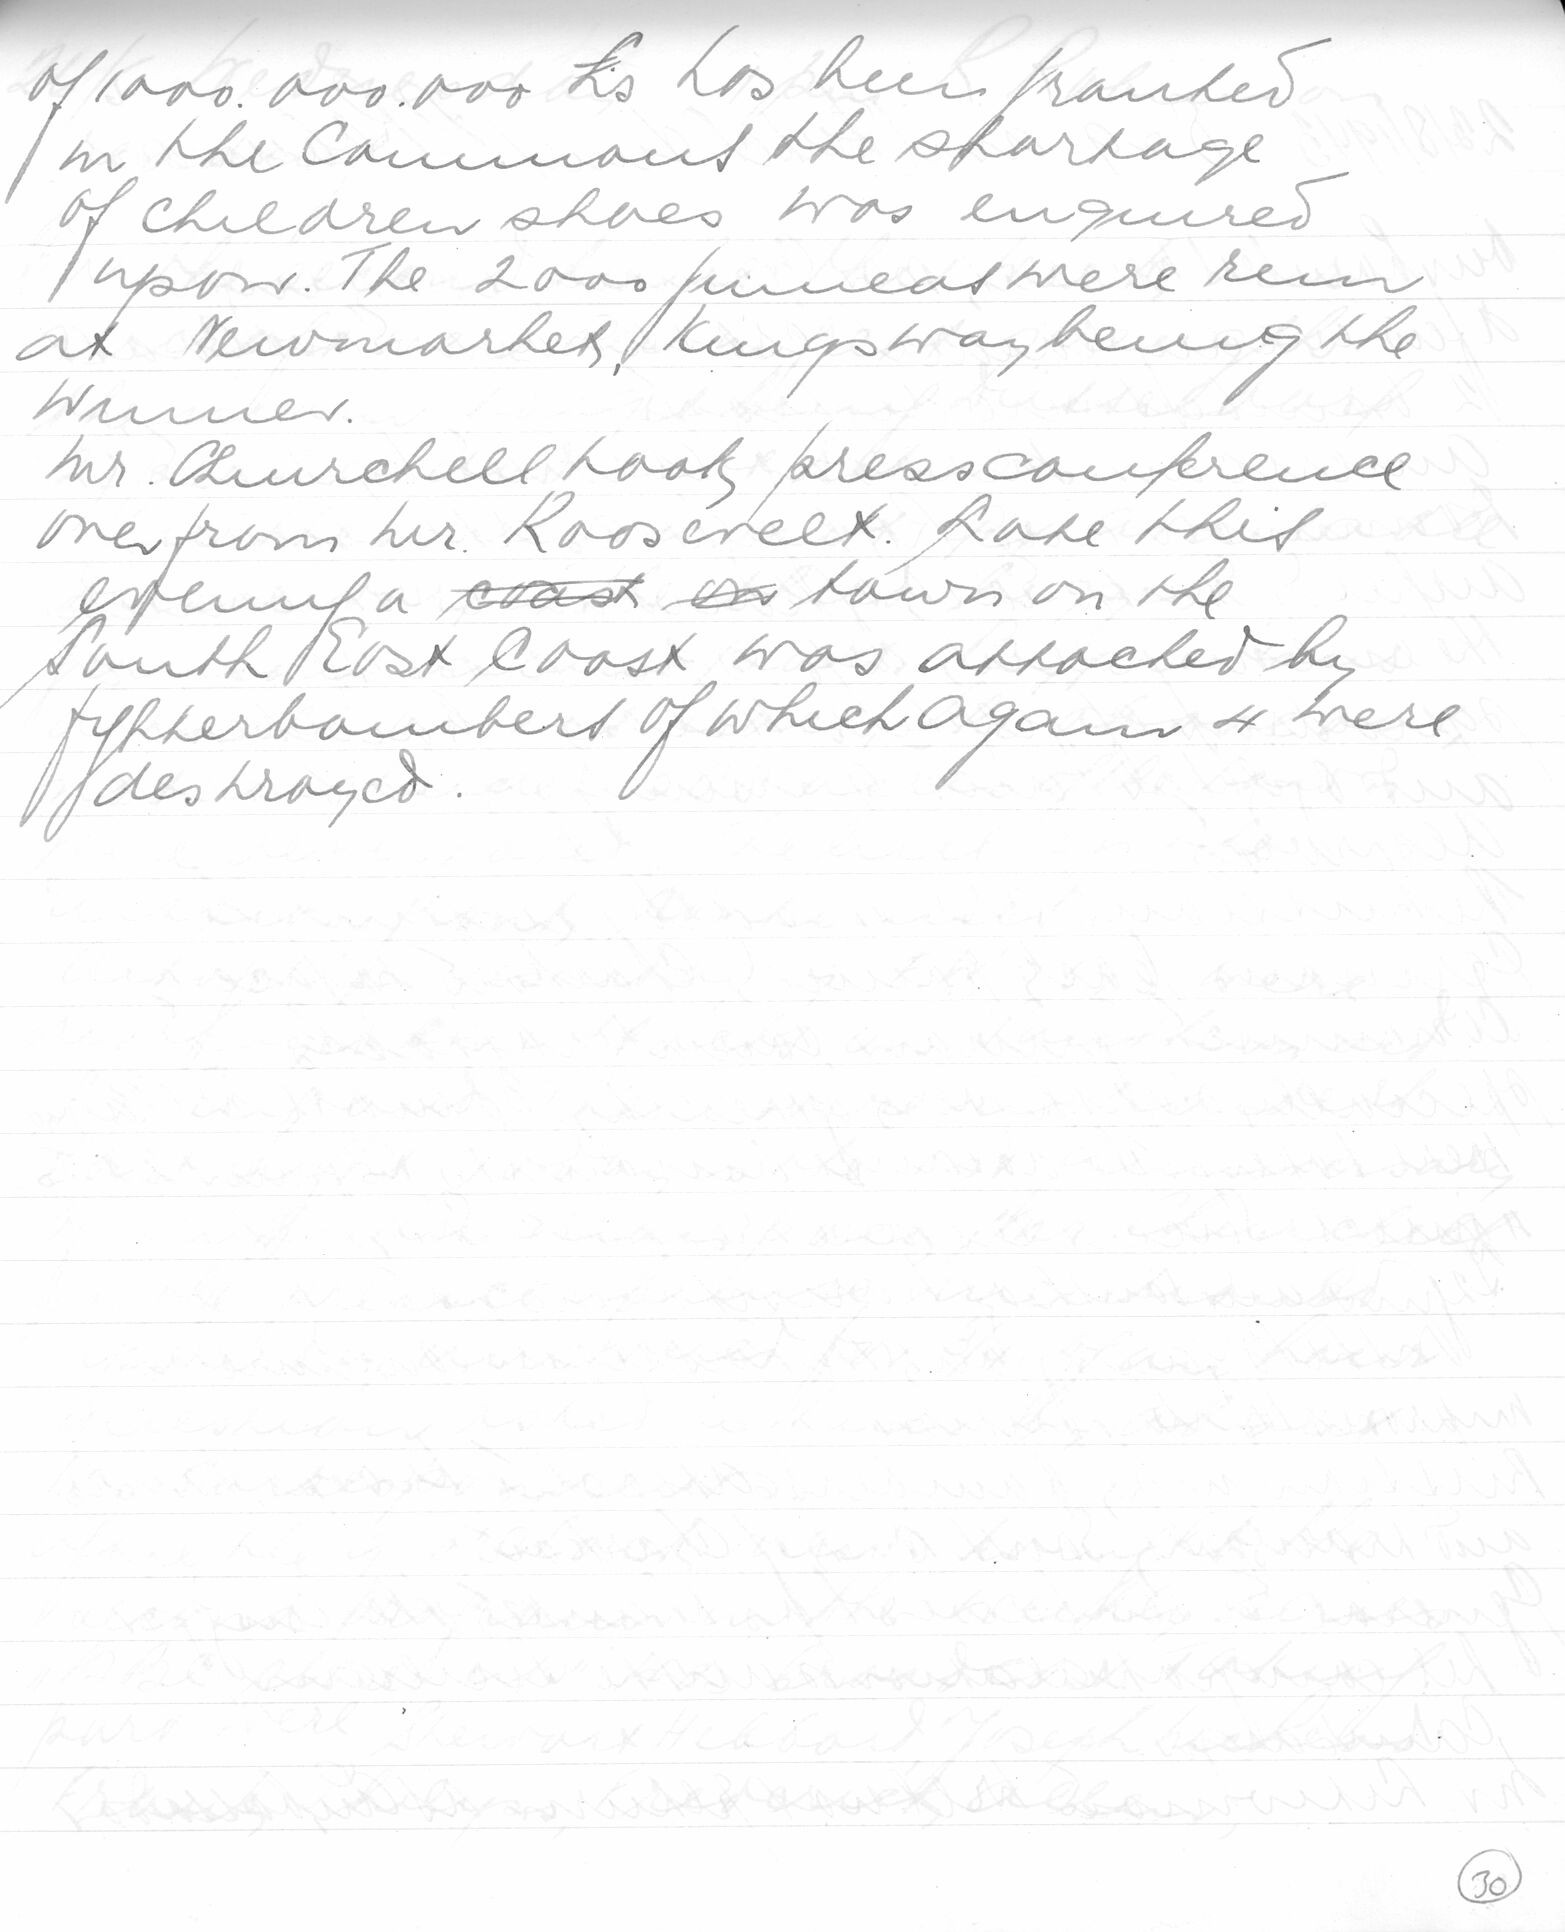 of 1000.000.000 £s has been granted
in the Commons the shortage
of children shoes was enquired
upon. The 2000 guineas were run
at Newmarket, Kingsway being the
winner.
Mr. Churchill took pressconference
over from Mr. Roosevelt. Late this
evening a coast on town on the
South East Coast was attacked by
fyhterbombers of which again 4 were
destroyed.
30